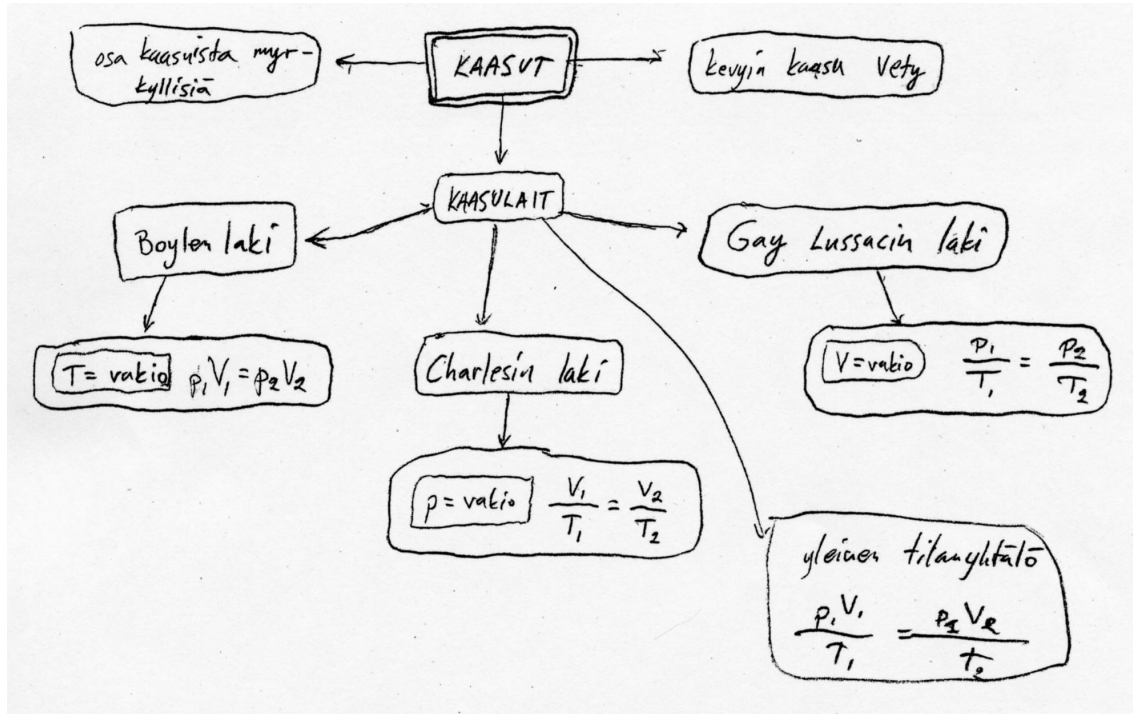 osa kaasuista myr-
kyllisiä
KAASUT
kevyin kaasu Vety
KAASULAIT
Boylen laki
Gay Lussacin laki
T = vakio p₁V₁ = p₂V₂
Charlesin laki
V = vakio p₁/T₁ = p₂/T₂
p = vakio V₁/T₁ = V₂/T₂
yleinen tilanyhtälö
p₁V₁/T₁ = p₂V₂/T₂